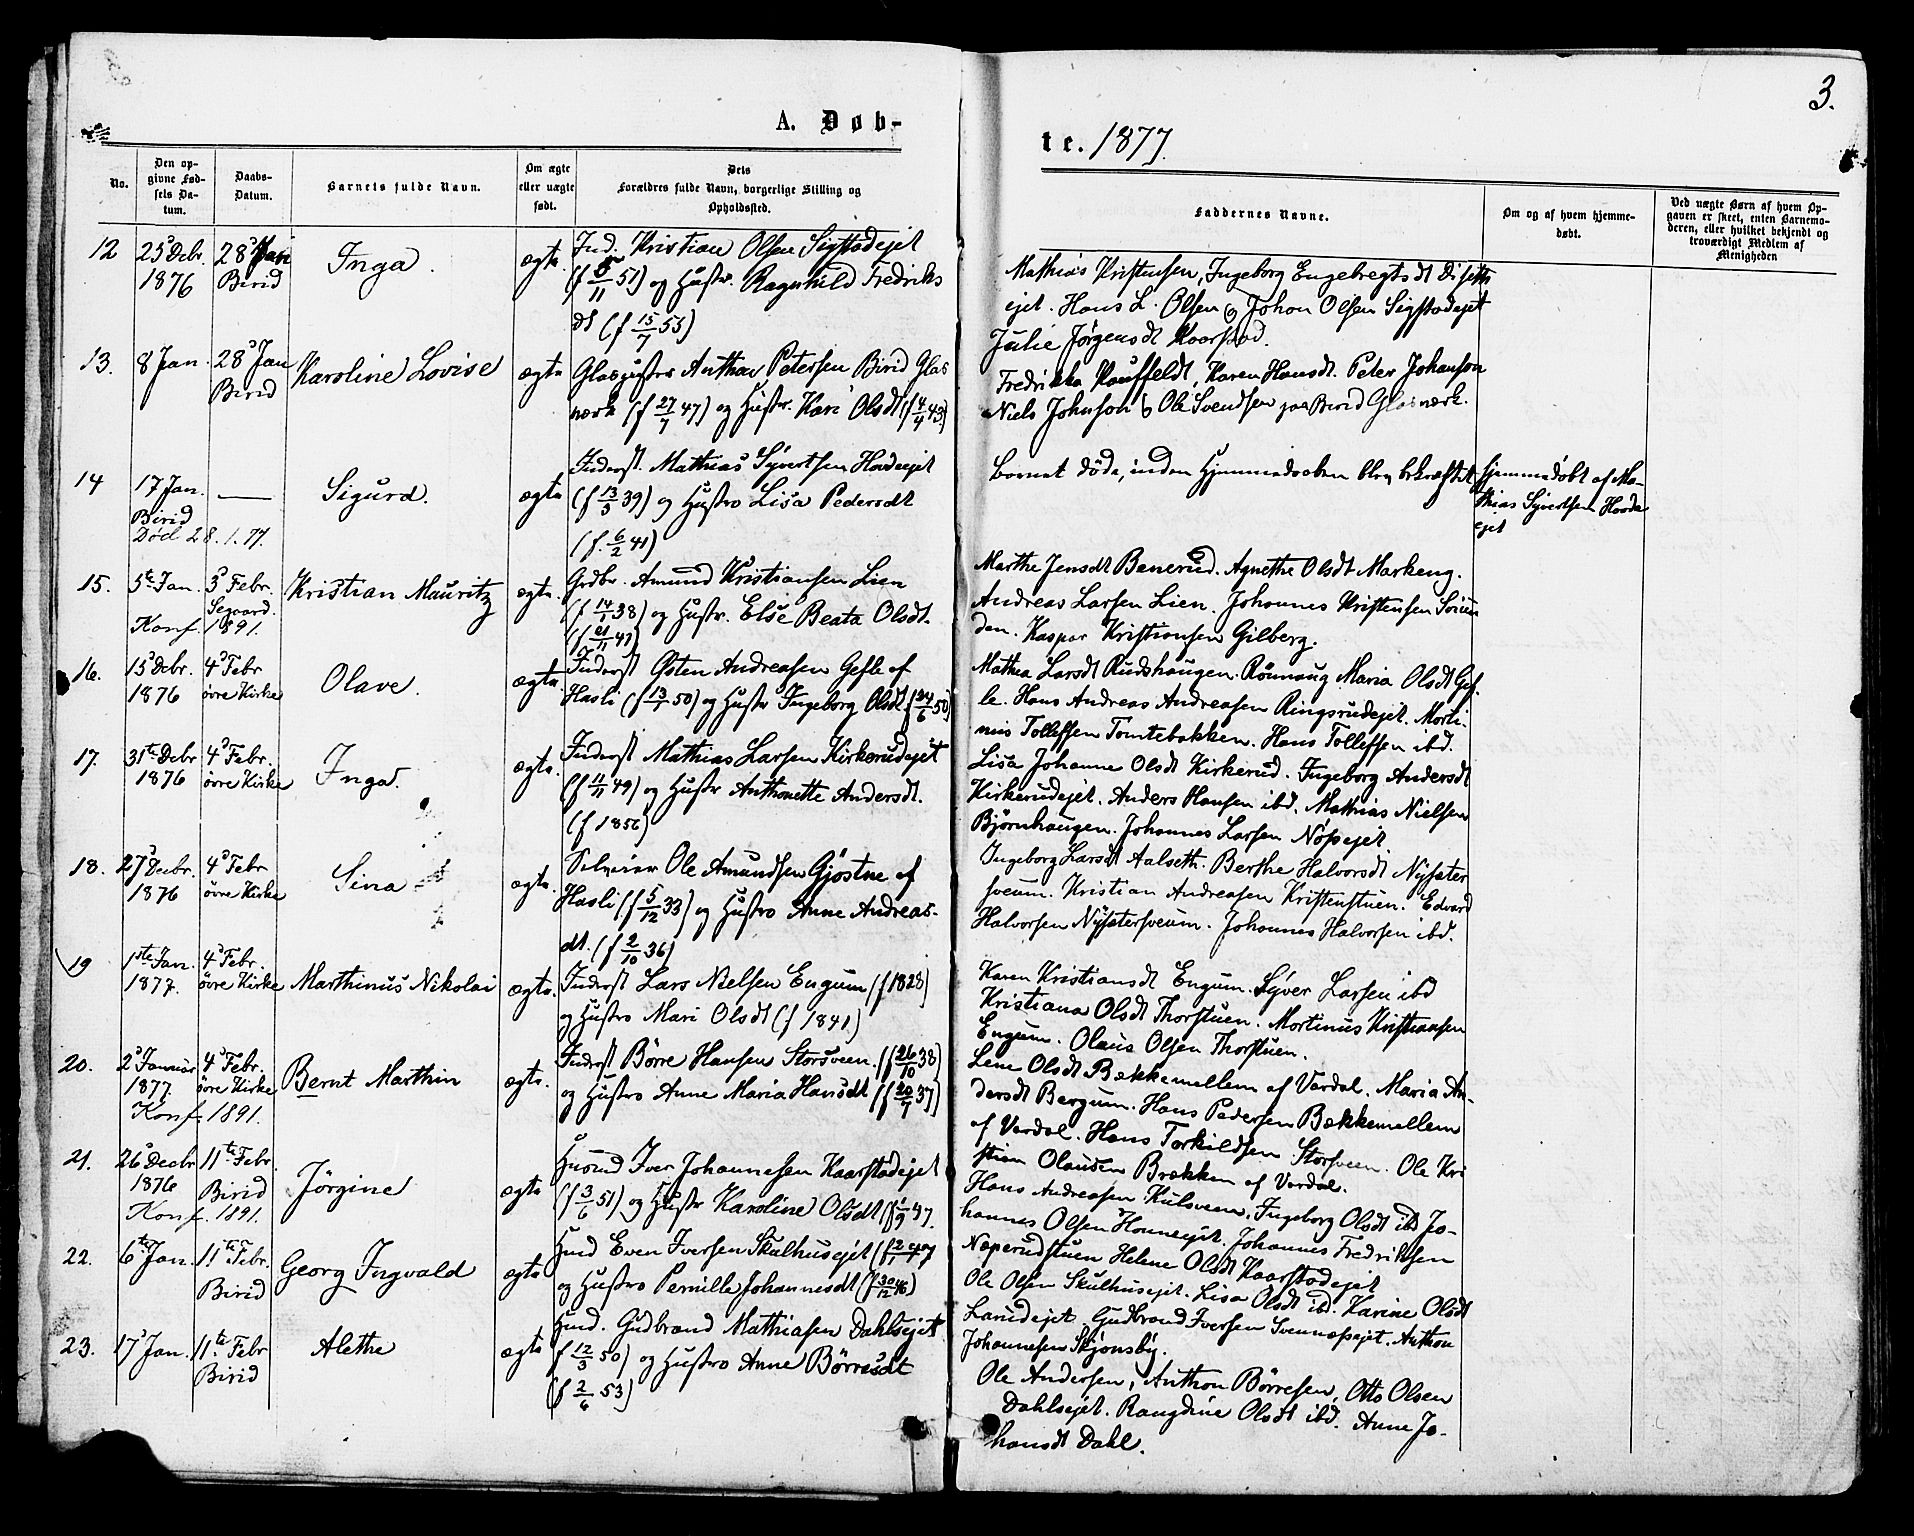 3.
A. Døb-
te. 1877.
No.
Den op-
givne Fød-
sels Da-
tum.
Daabs-
Datum.
Barnets fulde Navn.
Om ægte
eller uægte
født.
Dets
Forældres fulde Navn, borgerlige Stilling og
Opholdssted.
Faddernes Navne.
Om og af hvem hjemme-
døbt.
Ved uægte Børn af hvem Op-
gaven er skeet, enten Barnemo-
deren, eller hvilket bekjendt og
troværdigt Medlem af
Menigheden
12 25 Debr. 1876 28 Jan Birid Inga. ægte. Ind. Kristian Olsen Sigstadejet
(f 5/11 51) og Hustr. Ragnhild Fredriks
dt (f 15/7 53)
Mathias Kristensen, Ingeborg Engebregtsdt
ejet. Hans L. Olsen & Johan Olsen Sigstadejet
Julie Jørgensdt Kaarstad.
13. 8 Jan. 28 Jan Birid Karoline Lovise ægte Glaspuster Anthon Petersen Birid Glas
værk (f 27/7 47) og Hustr. Kari Olsdt (f 4/4 43)
Fredrikka Kauffeldt, Karen Hansdt. Peter Johanson
Niels Johnson & Ole Svendsen paa Birid Glasværk.
14 17 Jan. Birid — Sigurd. ægte Inderst. Mathias Syvertsen Hovdeejet
Død 28.1.77.
(f 13/5 39) og Hustro Lisa Pedersdt
(f. 6/2 41)
Barnet døde, inden Hjemmedaaben blev bekræftet
Hjemmedøbt af Ma-
thias Syvertsen Hovde
ejet
15. 5te Jan. 3 Febr. Kristian Mauritz ægte. Grdbr. Amund Kristiansen Lien
Konf. 1891.
(f 14/1 38) og Hustr. Else Beata Olsdt.
(f 21/11 47)
Marthe Jensdt Banerud. Agnethe Olsdt Markeng.
Andreas Larsen Lien. Johannes Kristensen
den. Kaspar Kristiansen Gilberg.
16. 15 Debr 1876 4 Febr øvre Kirke Olave. ægte Inderst Østen Andreasen Gefle af
Hasli (f 13/7 50) og Hustr Ingeborg Olsdt (f 24/6 50)
Mathea Larsdt Rudshaugen. Rønnaug Maria Olsdt Gef-
le. Hans Andreas Andreasen Ringsrudejet. Morti-
nus Tollefsen Tomtebakken. Hans Tollefsen ibd.
17. 31te Debr 1876 4 Febr. øvre Kirke Inga. ægte. Inderst Mathias Larsen Kirkerudejet
(f 4/11 49) og Hustr Anthonette Andersdt.
(f 1856)
Lisa Johanne Olsdt Kirkerud. Ingeborg Andersdt
Kirkerudejet. Anders Hansen ibd. Mathias Nielsen
Bjørnhaugen. Johannes Larsen Nøpsejet.
18. 27 Decbr. 1876 4 Febr øvre Kirke Sina ægte. Selveier Ole Amundsen Gjøstne af
Hasli (f 5/12 33) og Hustro Anne Andreas-
dt. (f 2/10 36)
Ingeborg Larsdt Aalseth. Berthe Halvorsdt Nysæter
sveum. Kristian Andreasen Kristenstuen. Edvard
Halvorsen Nysætersveum. Johannes Halvorsen ibd.
19 1ste Jan. 1877. 4 Febr. øvre Kirke Marthinus Nikolai ægte. Inderst Lars Nielsen Engum (f 1828)
og Hustro Mari Olsdt (f 1841)
Karen Kristiansdt Engum. Syver Larsen ibd
Kristiana Olsdt Thorstuen. Mortinus Kristiansen
Engum. Olaus Olsen Thorstuen.
20. 2 Januar 1877. 4 Febr. øvre Kirke Bernt Marthin ægte. Inderst Børre Hansen Storsveen. (f 26/10 38)
Konf. 1891.
og Hustro Anne Maria Hansdt (f 20/7 37)
Lene Olsdt Bækkemellem af Vardal. Maria An-
dersdt Bergum. Hans Pedersen Bækkemellem
af Vardal. Hans Torkildsen Storsveen. Ole Kri
stian Olausen Brækken af Vardal.
21. 26 Decbr 1876 11te Febr. Birid Jørgine ægte Husmd Iver Johannesen Kaarstadejet
Konf. 1891.
(f 3/6 51) og Hustr Karoline Olsdt (f 1/9 47.
Hans Andreasen Kulsveen. Ingeborg Olsdt ibd Jo-
hannes Olsen Honneejet. Johannes Fredriksen
Nøperudstuen Helene Olsdt Kaarstadejet
22. 6te Jan. 11te Febr. Birid Georg Ingvald ægte Hmd Even Iversen Skulhusejet
og Hustro Pernille Johannesdt (f 30/12 46)
Ole Olsen Skulhusejet. Lisa Olsdt ibd. Karine Olsdt
Gudbrand Iversen Svennæsejet. Anthon
Johannesen Skjønsby.
23. 17 Jan. 11te Febr Birid Alethe ægte Hmd. Gudbrand Mathiasen Dahlsejet
(f 12/3 50) og Hustro Anne Børresdt
(f 2/6 53)
Ole Andersen, Anthon Børresen, Otto Olsen
Dahlsejet. Rangdine Olsdt ibd. Anne Jo-
hansdt Dahl.